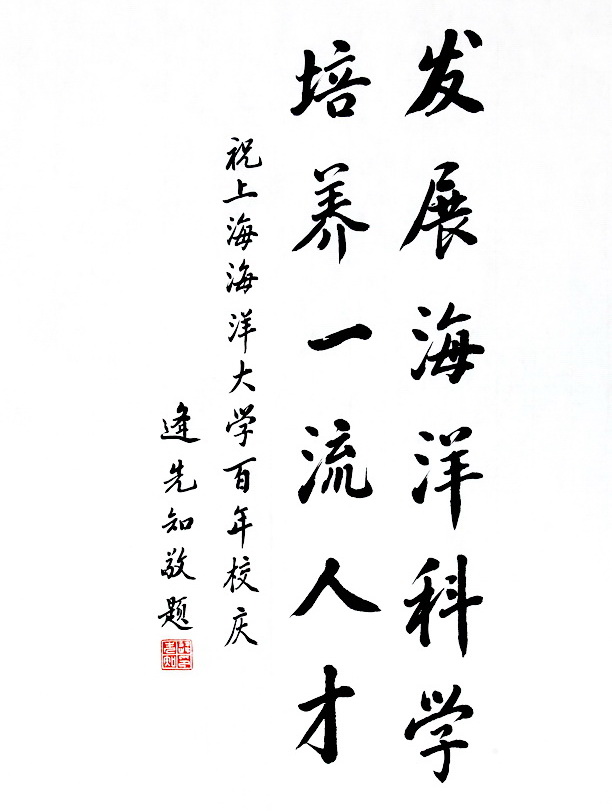 发展海洋科学
培养一流人才
祝上海海洋大学百年校庆
逄先知敬题